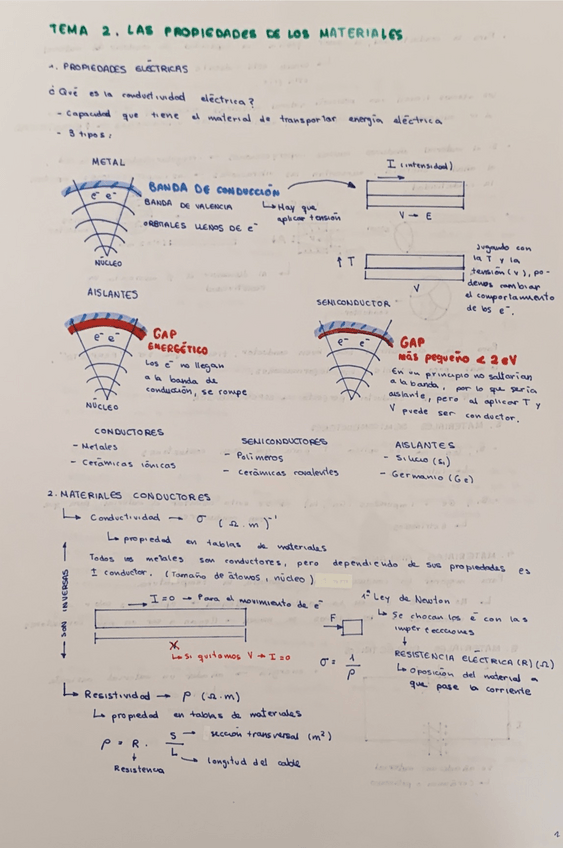 TEMA 2. LAS PROPIEDADES DE LOS MATERIALES
1. PROPIEDADES ELÉCTRICAS
¿Qué es la conductividad eléctrica?
- Capacidad que tiene el material de transportar energía eléctrica
- 3 tipos:
METAL
e⁻ e⁻
NÚCLEO
BANDA DE CONDUCCIÓN
BANDA DE VALENCIA
ORBITALES LLENOS DE e⁻
↳ Hay que
aplicar tensión
I (intensidad)
V → E
↑ T
V
Jugando con
la T y la
tensión (V), po-
demos cambiar
el comportamiento
de los e⁻.
AISLANTES
e⁻ e⁻
NÚCLEO
GAP
ENERGÉTICO
Los e⁻ no llegan
a la banda de
conducción, se rompe
SEMICONDUCTOR
e⁻ e⁻
GAP
más pequeño < 2 eV
En un principio no saltarían
a la banda, por lo que sería
aislante, pero al aplicar T y
V puede ser conductor.
CONDUCTORES
- Metales
- Cerámicas iónicas
SEMICONDUCTORES
- Polímeros
- Cerámicas covalentes
AISLANTES
- Silicio (Si)
- Germanio (Ge)
2. MATERIALES CONDUCTORES
↳ Conductividad → σ (Ω.m)⁻¹
↳ propiedad en tablas de materiales
Todos los metales son conductores, pero dependiendo de sus propiedades es
± conductor. (Tamaño de átomos, núcleo)
← SON INVERSAS →
I=0 → Para el movimiento de e⁻
X
↳ Si quitamos V → I=0
1ª Ley de Newton
↳ Se chocan los e⁻ con las
imperfecciones
F
σ = 1/ρ
RESISTENCIA ELÉCTRICA (R) (Ω)
↳ Oposición del material a
que pase la corriente
↳ Resistividad → ρ (Ω.m)
↳ propiedad en tablas de materiales
ρ = R · S/L
S → sección transversal (m²)
L → longitud del cable
Resistencia
1